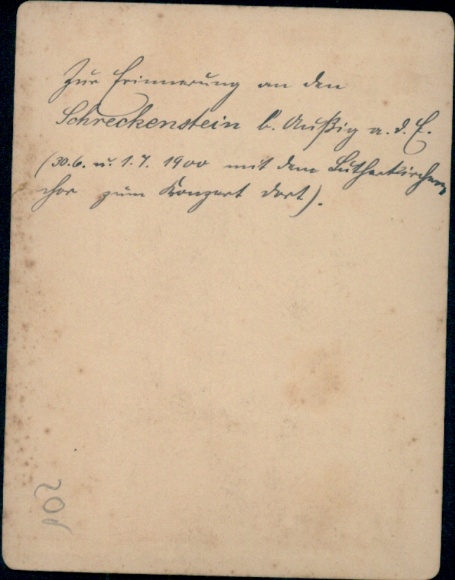 Zur Erinnerung an den
Schreckenstein b. Außig a. d. E.
(30.6. u. 1.7. 1900 mit dem Lutherkirchen
chor zum Konzert dort).
201